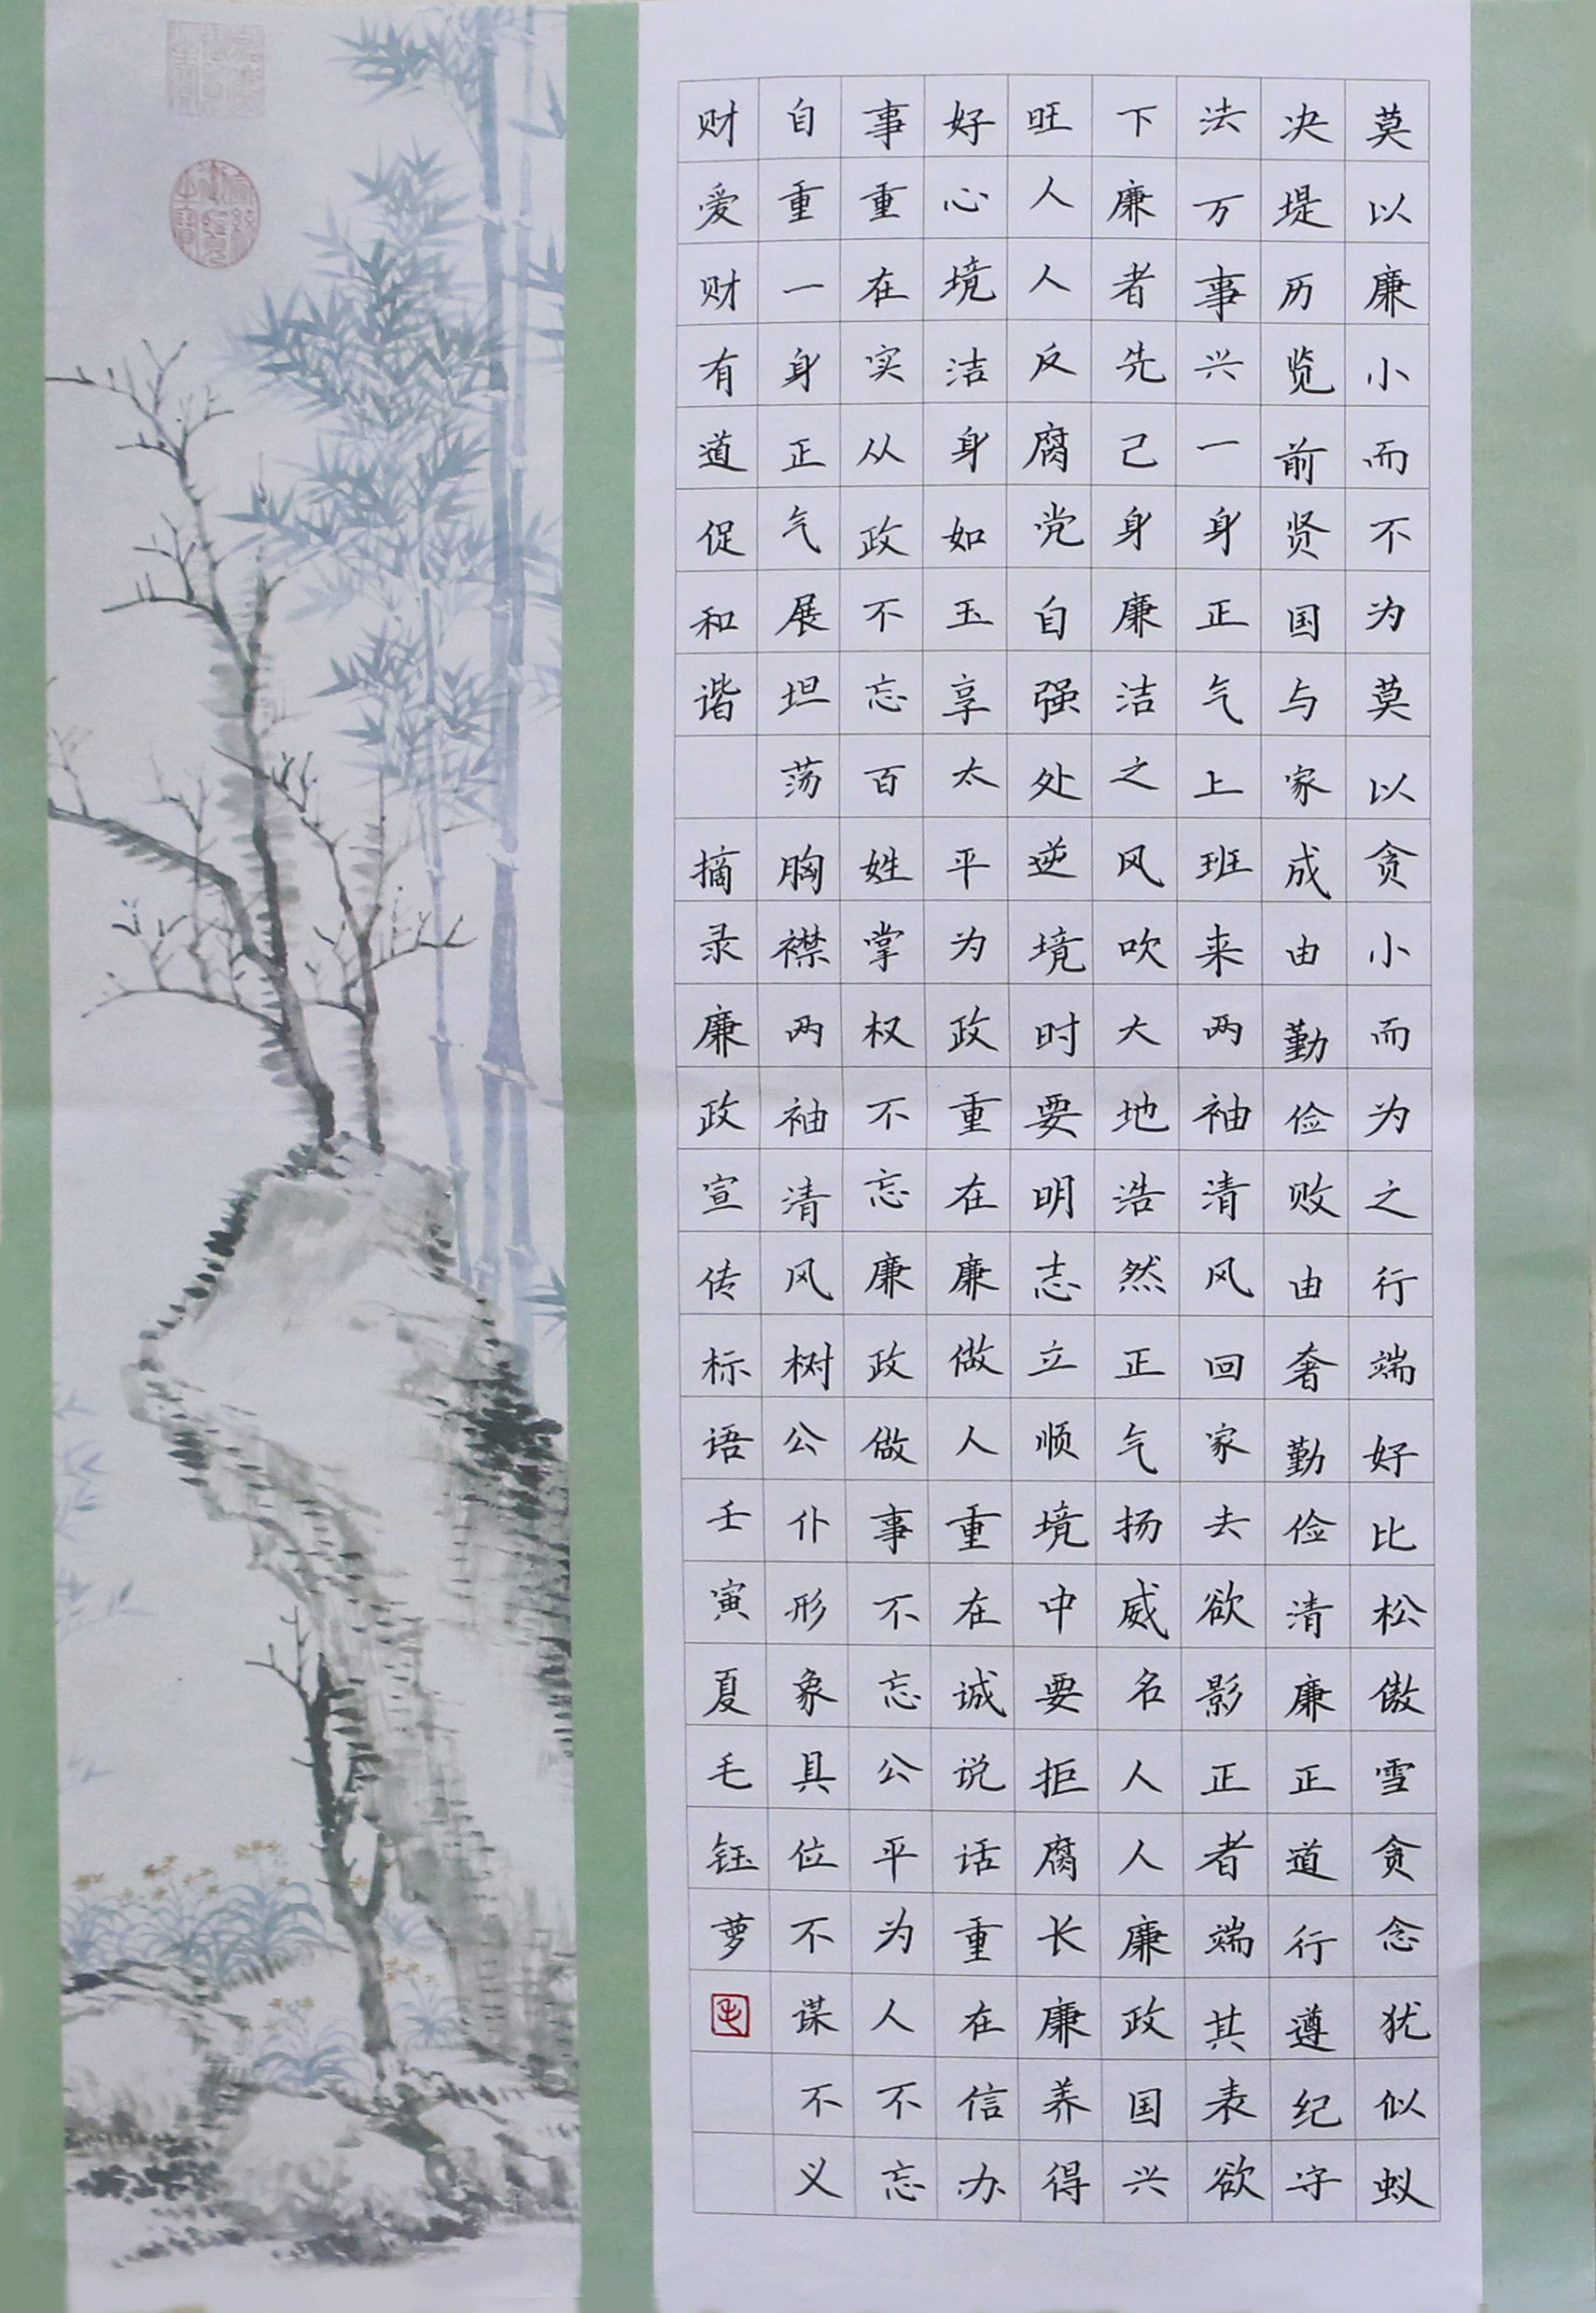 莫以廉小而不为莫以贪小而为之行端好比松傲雪贪念犹似蚁
决堤历览前贤国与家成由勤俭败由奢勤俭清廉正道行遵纪守
法万事兴一身正气上班来两袖清风回家去欲影正者端其表欲
下廉者先己身廉洁之风吹大地浩然正气扬威名人人廉政国兴
旺人人反腐党自强处逆境时要明志立顺境中要拒腐长廉养得
好心境洁身如玉享太平为政重在廉做人重在诚说话重在信办
事重在实从政不忘百姓掌权不忘廉政做事不忘公平为人不忘
自重一身正气展坦荡胸襟两袖清风树公仆形象具位不谋不义
财爱财有道促和谐 摘录廉政宣传标语壬寅夏毛钰萝